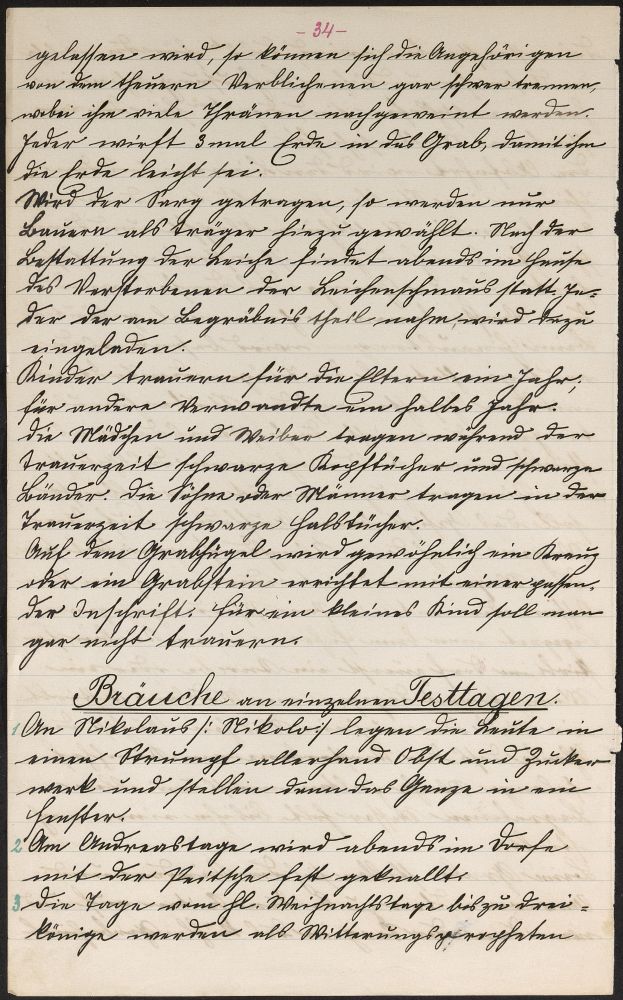 - 34 -
gelassen wird, so können sich die Angehörigen
von dem theuern Verblichenen gar schwer trennen,
wobei ihm viele Thränen nachgeweint werden.
Jeder wirft 3 mal Erde in das Grab, damit ihm
die Erde leicht sei.
Wird der Sarg getragen, so werden nur
Bauern als Träger hiezu gewählt. Nach der
Bestattung der Leiche findet abends im Hause
des Verstorbenen der Leichenschmaus statt, Je=
der der am Begräbnis theil nahm, wird dazu
eingeladen.
Kinder trauern für die Eltern ein Jahr;
für andere Verwandte ein halbes Jahr.
Die Mädchen und Weiber tragen während der
Trauerzeit schwarze Kopftücher und schwarze
Bänder. Die Söhne oder Männer tragen in der
Trauerzeit schwarze Halstücher.
Auf dem Grabhügel wird gewöhnlich ein Kreuz
oder ein Grabstein errichtet mit einer passen-
der Inschrift. Für ein kleines Kind soll man
gar nicht trauern.
Bräuche an einzelnen Festtagen.
1 An Nikolaus /: Nikolo :/ legen die Leute in
einen Strumpf allerhand Obst und Zucker
werk und stellen dann das Ganze in ein
Fenster.
2 Am Andreastage wird abends im Dorfe
mit der Peitsche fest geknallt.
3 Die Tage vom hl. Weihnachtstage bis zu Drei=
könige werden als Witterungspropheten